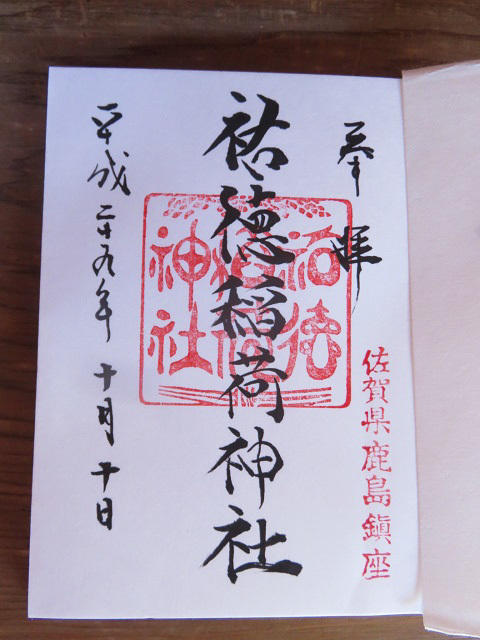 奉拝
佐賀県鹿島鎮座
祐徳稲荷神社
祐徳稲荷神社
平成二十九年十月十日